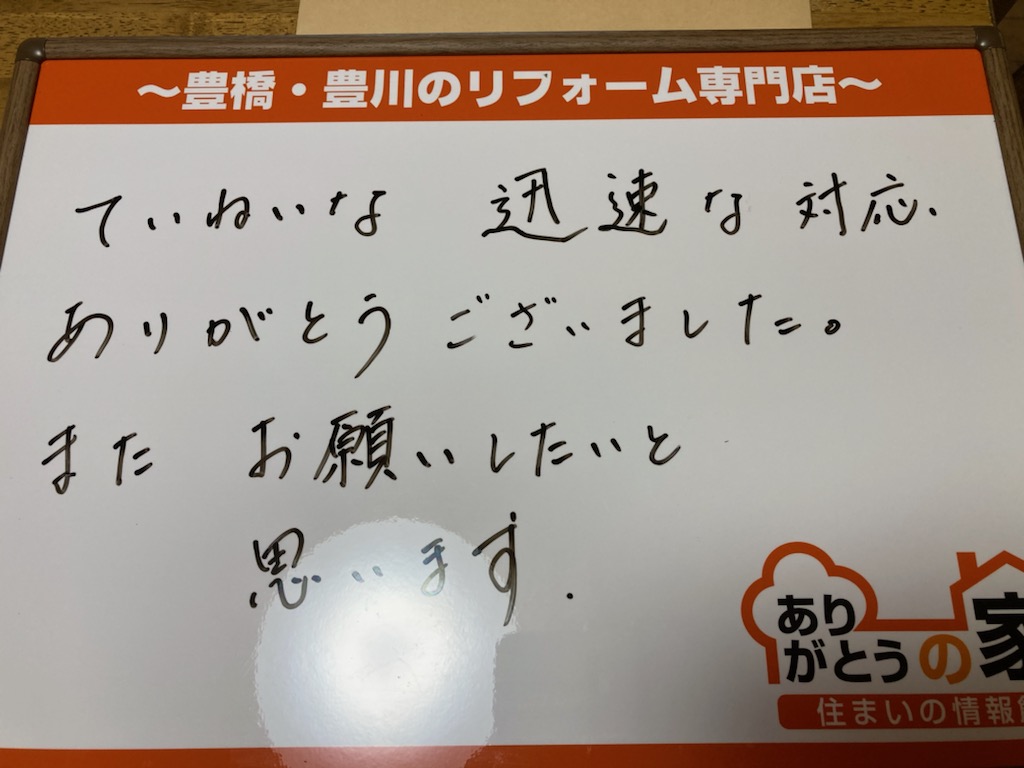 ～豊橋・豊川のリフォーム専門店～
ていねいな 迅速な対応.
ありがとうございました。
また お願いしたいと
思います.
ありがとうの家
住まいの情報